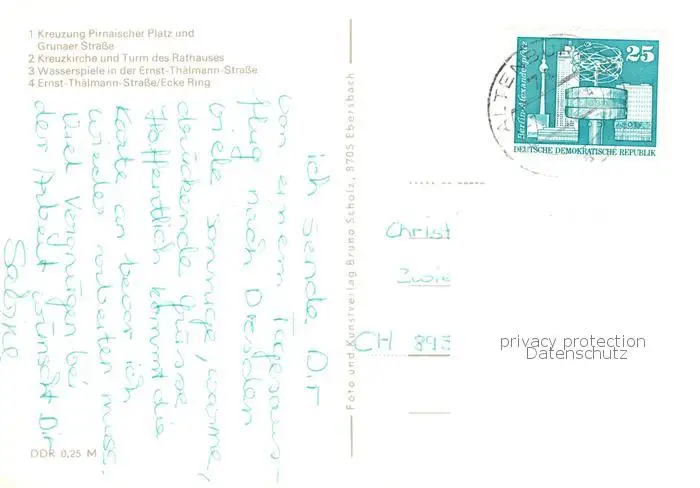 1 Kreuzung Pirnaischer Platz und
Grunaer Straße
2 Kreuzkirche und Turm des Rathauses
3 Wasserspiele in der Ernst-Thälmann-Straße
4 Ernst-Thälmann-Straße/Ecke Ring
ich sende Dir
von einem Tagesaus-
flug nach Dresden
viele sonnige, warme,
drückende Grüsse
Hoffentlich kommt die
Karte an bevor ich
wieder arbeiten muss.
Viel Vergnügen bei
der Arbeit wünscht Dir
Sabine
DDR 0,25 M
Foto und Kunstverlag Bruno Scholz, 8705 Ebersbach
ALTENBU
25
Berlin-Alexanderplatz
DEUTSCHE DEMOKRATISCHE REPUBLIK
Christ
Zwie
CH 893
privacy protection
Datenschutz